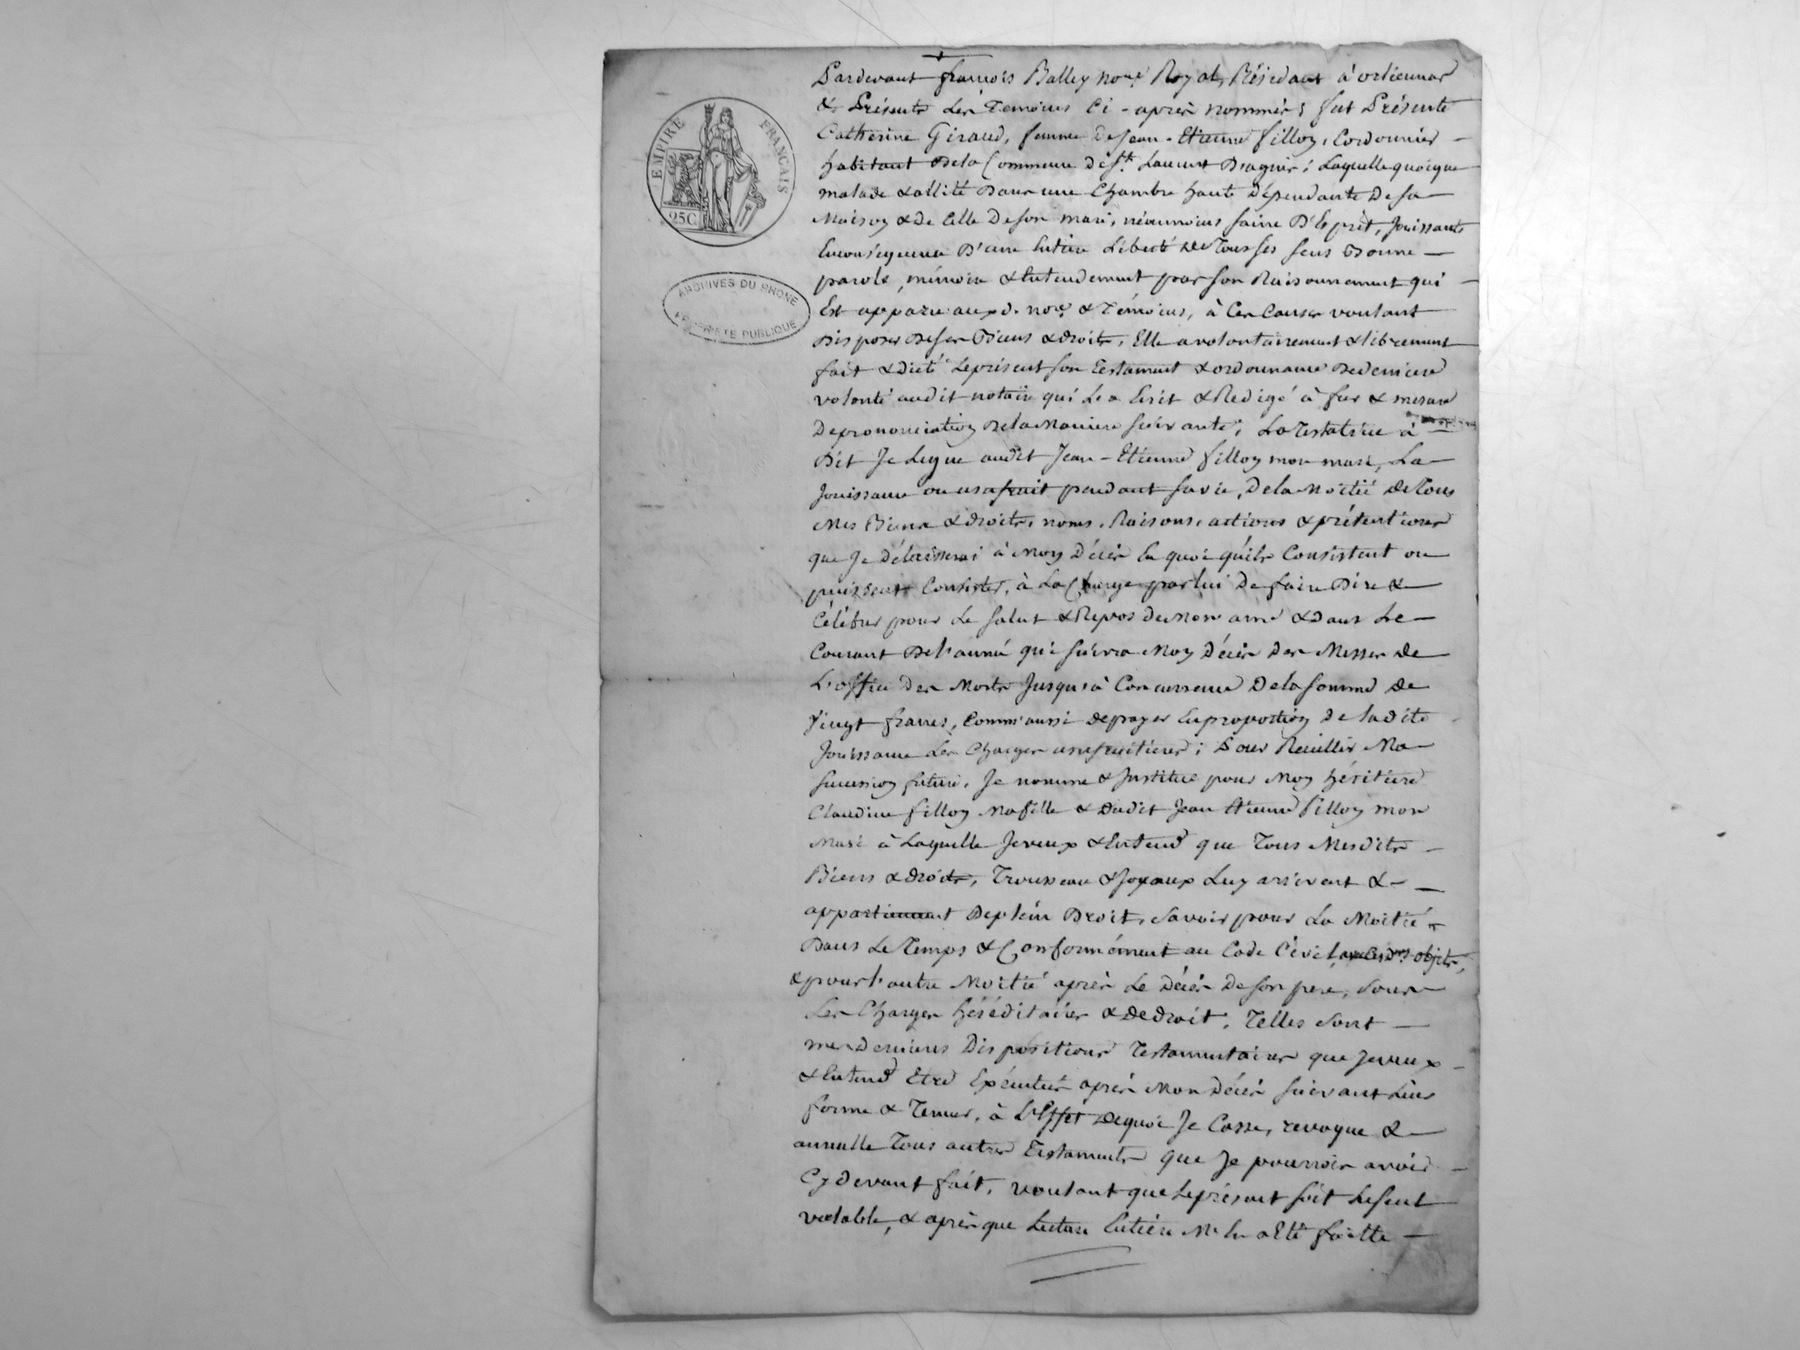 EMPIRE FRANÇAIS
25C
ARCHIVES DU RHONE
PROPRIETE PUBLIQUE
Pardevant françois Balley no.re Royal, Résidant à orliennas
& Présents Les Temoins Ci-après nommés; fut Présente
Catherine Giraud, femme De Jean-Etienne filloy, Cordonnier
habitant De la Commune de St. Laurent Dagnier; Laquelle quoique
malade & allité Dans une Chambre haute Dépendante De sa
Maison & de Celle De son mari, néanmoins saine D'Esprit, Jouissante
En conséquence D'une Entiere Liberté de Tous ses sens Bonne
parole, mémoire & Entendement par son Raisonnement qui
Est apparu aux d. no.re & Témoins, à Ces Causes voulant
Disposer De ses Biens & droits, Elle a volontairement & librement
fait & dicté Le présent son Testament & ordonnance De derniere
volonté audit notaire qui L'a Ecrit & Redigé à fur & mesure
De prononciation De la Maniere suivante; La Testatrice à
Dit Je Legue audit Jean-Etienne filloy mon mari, La
Jouissance ou usufruit pendant sa vie, De la Moitié de Tous
Mes Biens & droits, noms, Raisons, actions & prétentions
que Je Délaisserai à Moy Décès En quoi qu'ils Consistent ou
puissent Consister, à La Charge par lui De faire Dire &
Célébrer pour Le salut & Repos de mon ame & Dans Le
Courant De l'année qui suivra Moy Décès Des Messes de
L'office Des Morts Jusqu'à Concurrence De la somme De
Vingt francs, Comm'aussi de payer En proportion De ladite
Jouissance Les Charges usufruitieres; Pour Receuillir Ma
succession future, Je nomme & Institue pour Moy héritiere
Claudine filloy Ma fille & dudit Jean Etienne filloy mon
Mari à Laquelle Je veux & Entend que Tous Mesdits
Biens & droits, Trousseau & Joyaux Luy arrivent &
appartiennent De plein Droit, Savoir pour La Moitié
Dans Le Temps & Conformément au Code Civil, objets,
& pour l'autre Moitié après Le Décès De son pere, sous
Les Charges héréditaires & De droit, Telles sont
mes dernieres Dispositions Testamentaires que Je veux
& Entend Etre Exécutées après Mon Décès suivant Leur
forme & Teneur, à L'Effet De quoi Je Casse, revoque &
annulle Tous autres Testaments que Je pourrois avoir
Cy devant fait, voulant que Le présent soit Le seul
valable, & après que Lecture Entière M'en a Eté faitte